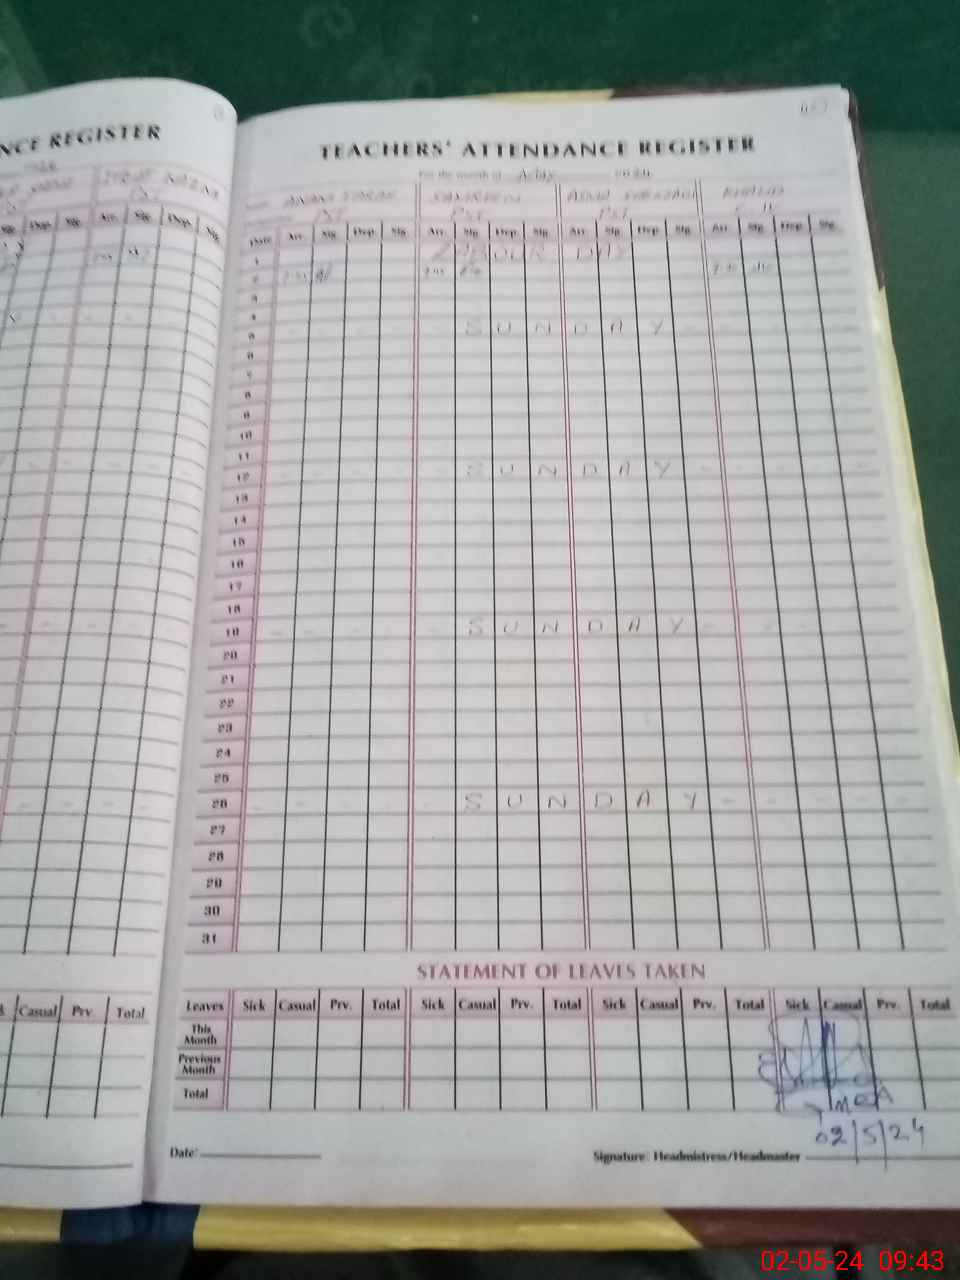 NCE REGISTER
TEACHERS' ATTENDANCE REGISTER
For the month of May 2024
SAMREEN
KHALID
PST PST PST
Dep. Sig. Arr. Sig. Dep. Sig.
Date Arr. Sig. Dep. Sig. Arr. Sig. Dep. Sig. Arr. Sig. Dep. Sig. Arr. Sig. Dep. Sig.
1 LABOUR DAY
2
3
4
5 SUNDAY
6
7
8
9
10
11
12 SUNDAY
13
14
15
16
17
18
19 SUNDAY
20
21
22
23
24
25
26 SUNDAY
27
28
29
30
31
STATEMENT OF LEAVES TAKEN
Casual Prv. Total
Leaves Sick Casual Prv. Total Sick Casual Prv. Total Sick Casual Prv. Total Sick Casual Prv. Total
This Month
Previous Month
Total
MEA
02/5/24
Date:
Signature: Headmistress/Headmaster
02-05-24 09:43